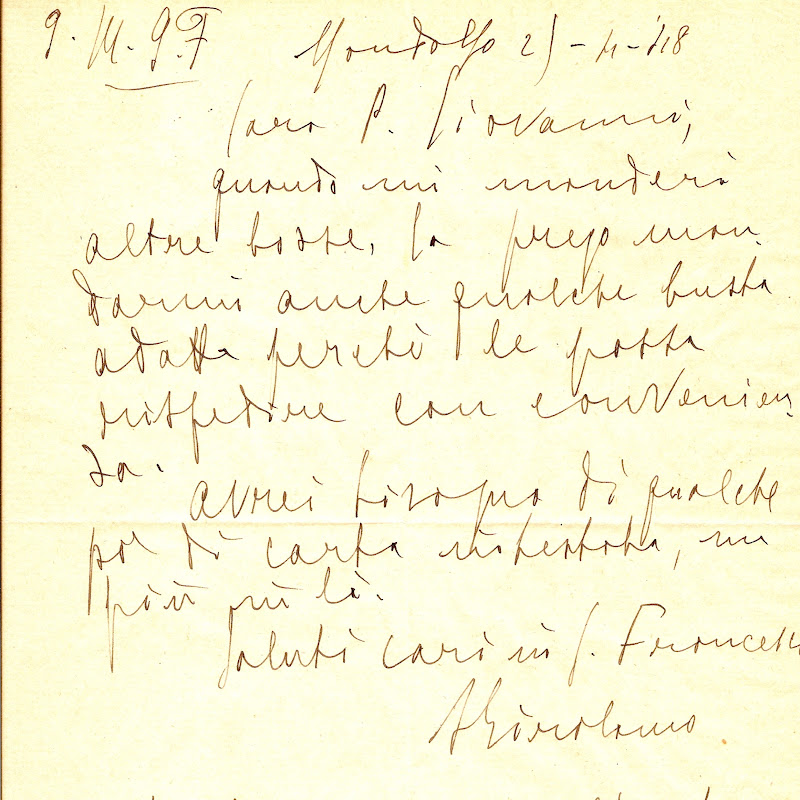 G. M. G. F
Mondolfo 25-11-'48
Caro P. Giovanni,
quando mi manderà
altre bozze, La prego man
darmi anche qualche busta
adatta perchè le possa
rispedire con convenien
za.
Avrei bisogno di qualche
po' di carta intestata, un
più in là.
Saluti cari in S. Francesco
Girolamo